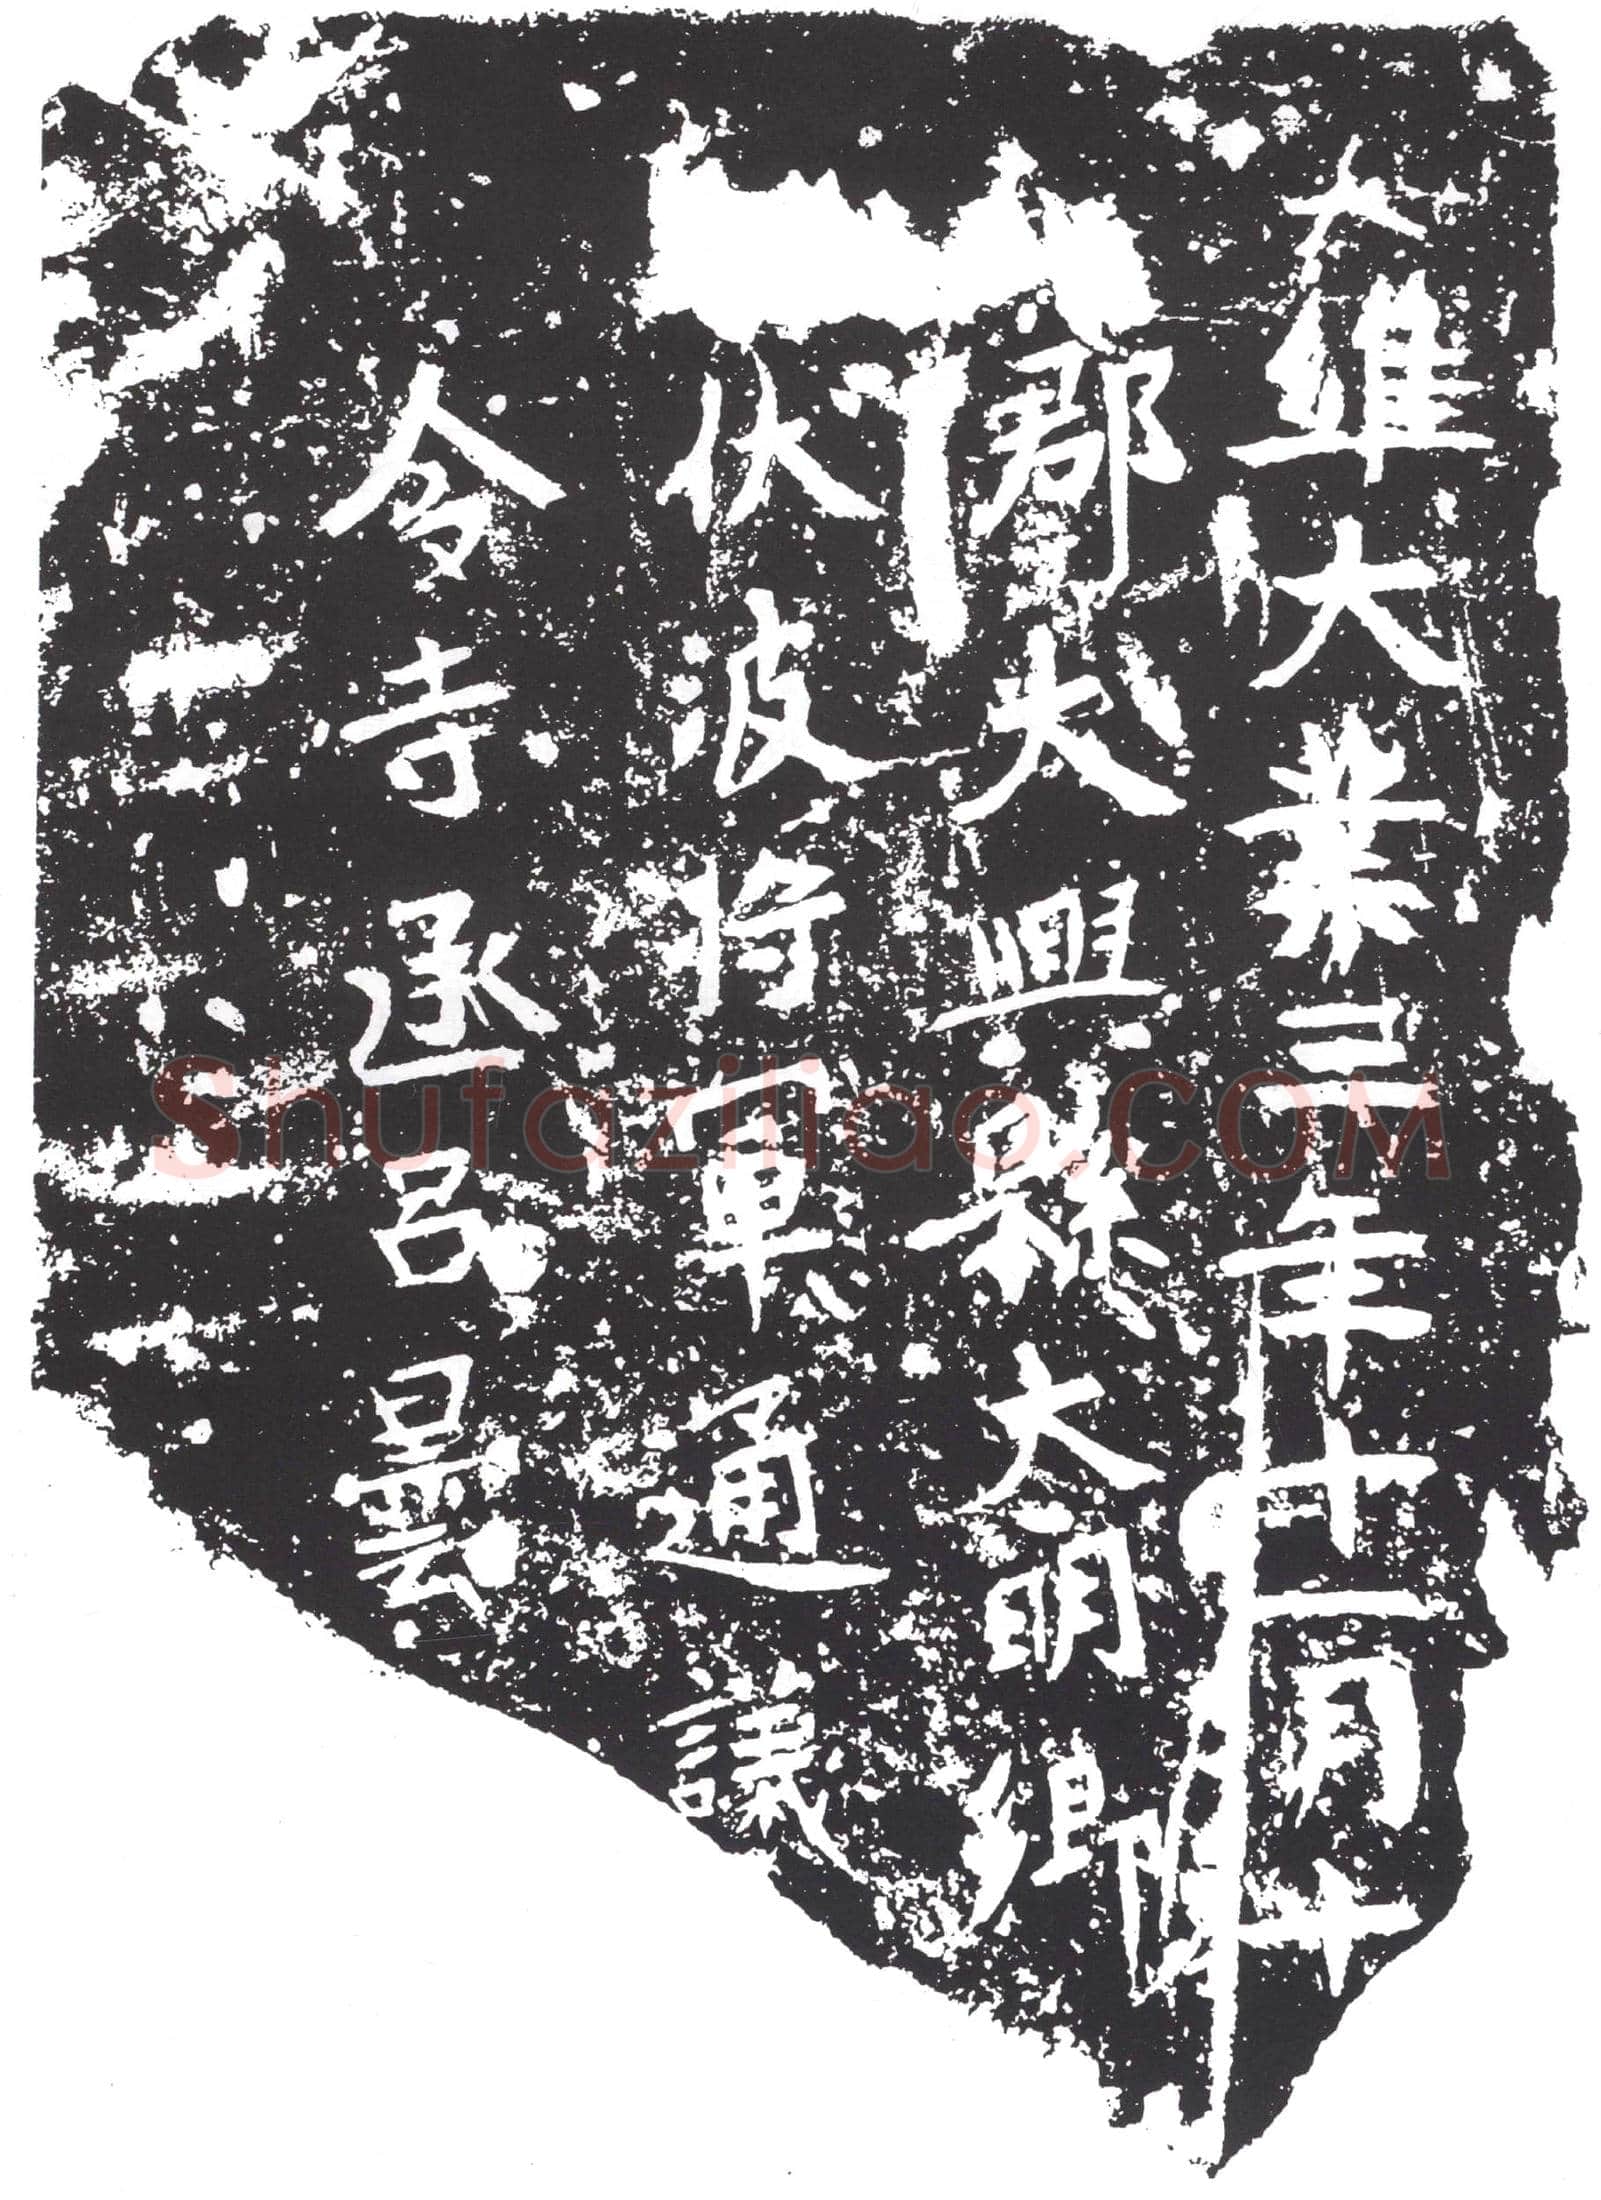 大維大業三年十一月廿
郡大興縣大明鄉
伏波將軍通議
令寺丞呂曇
Shufaziliao.COM